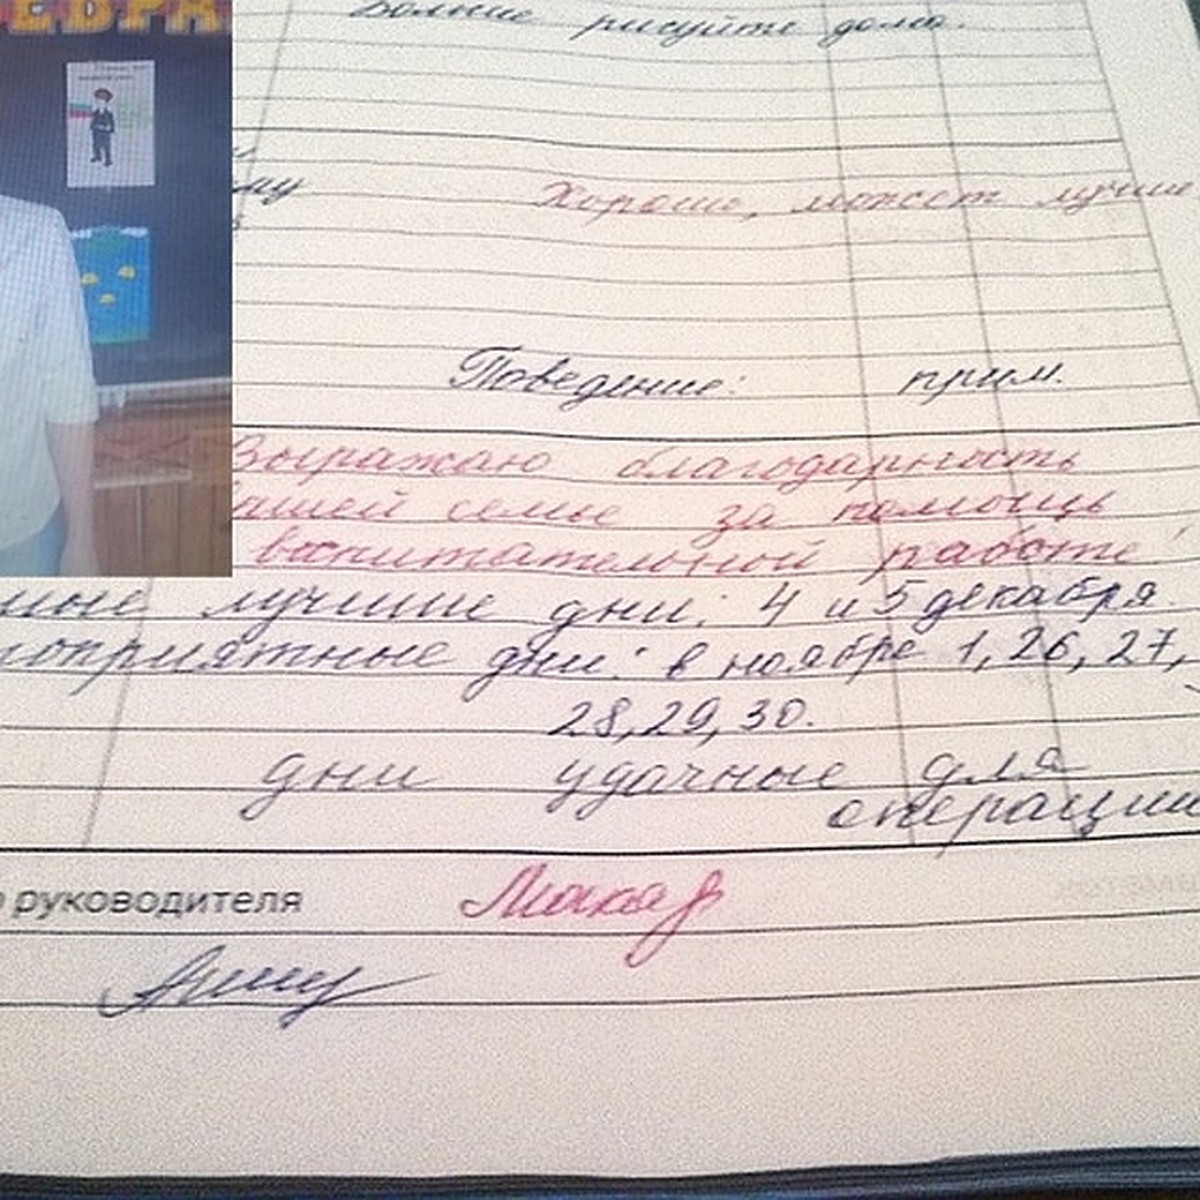 ЕВРА
Больше рисуйте дома.
му
Хорошо, может лучше
Поведение: прим.
Выражаю благодарность
вашей семье за помощь
воспитательной работе!
мые лучшие дни: 4 и 5 декабря.
гоприятные дни: в ноябре 1, 26, 27,
28, 29, 30.
дни удачные для
операции
о руководителя